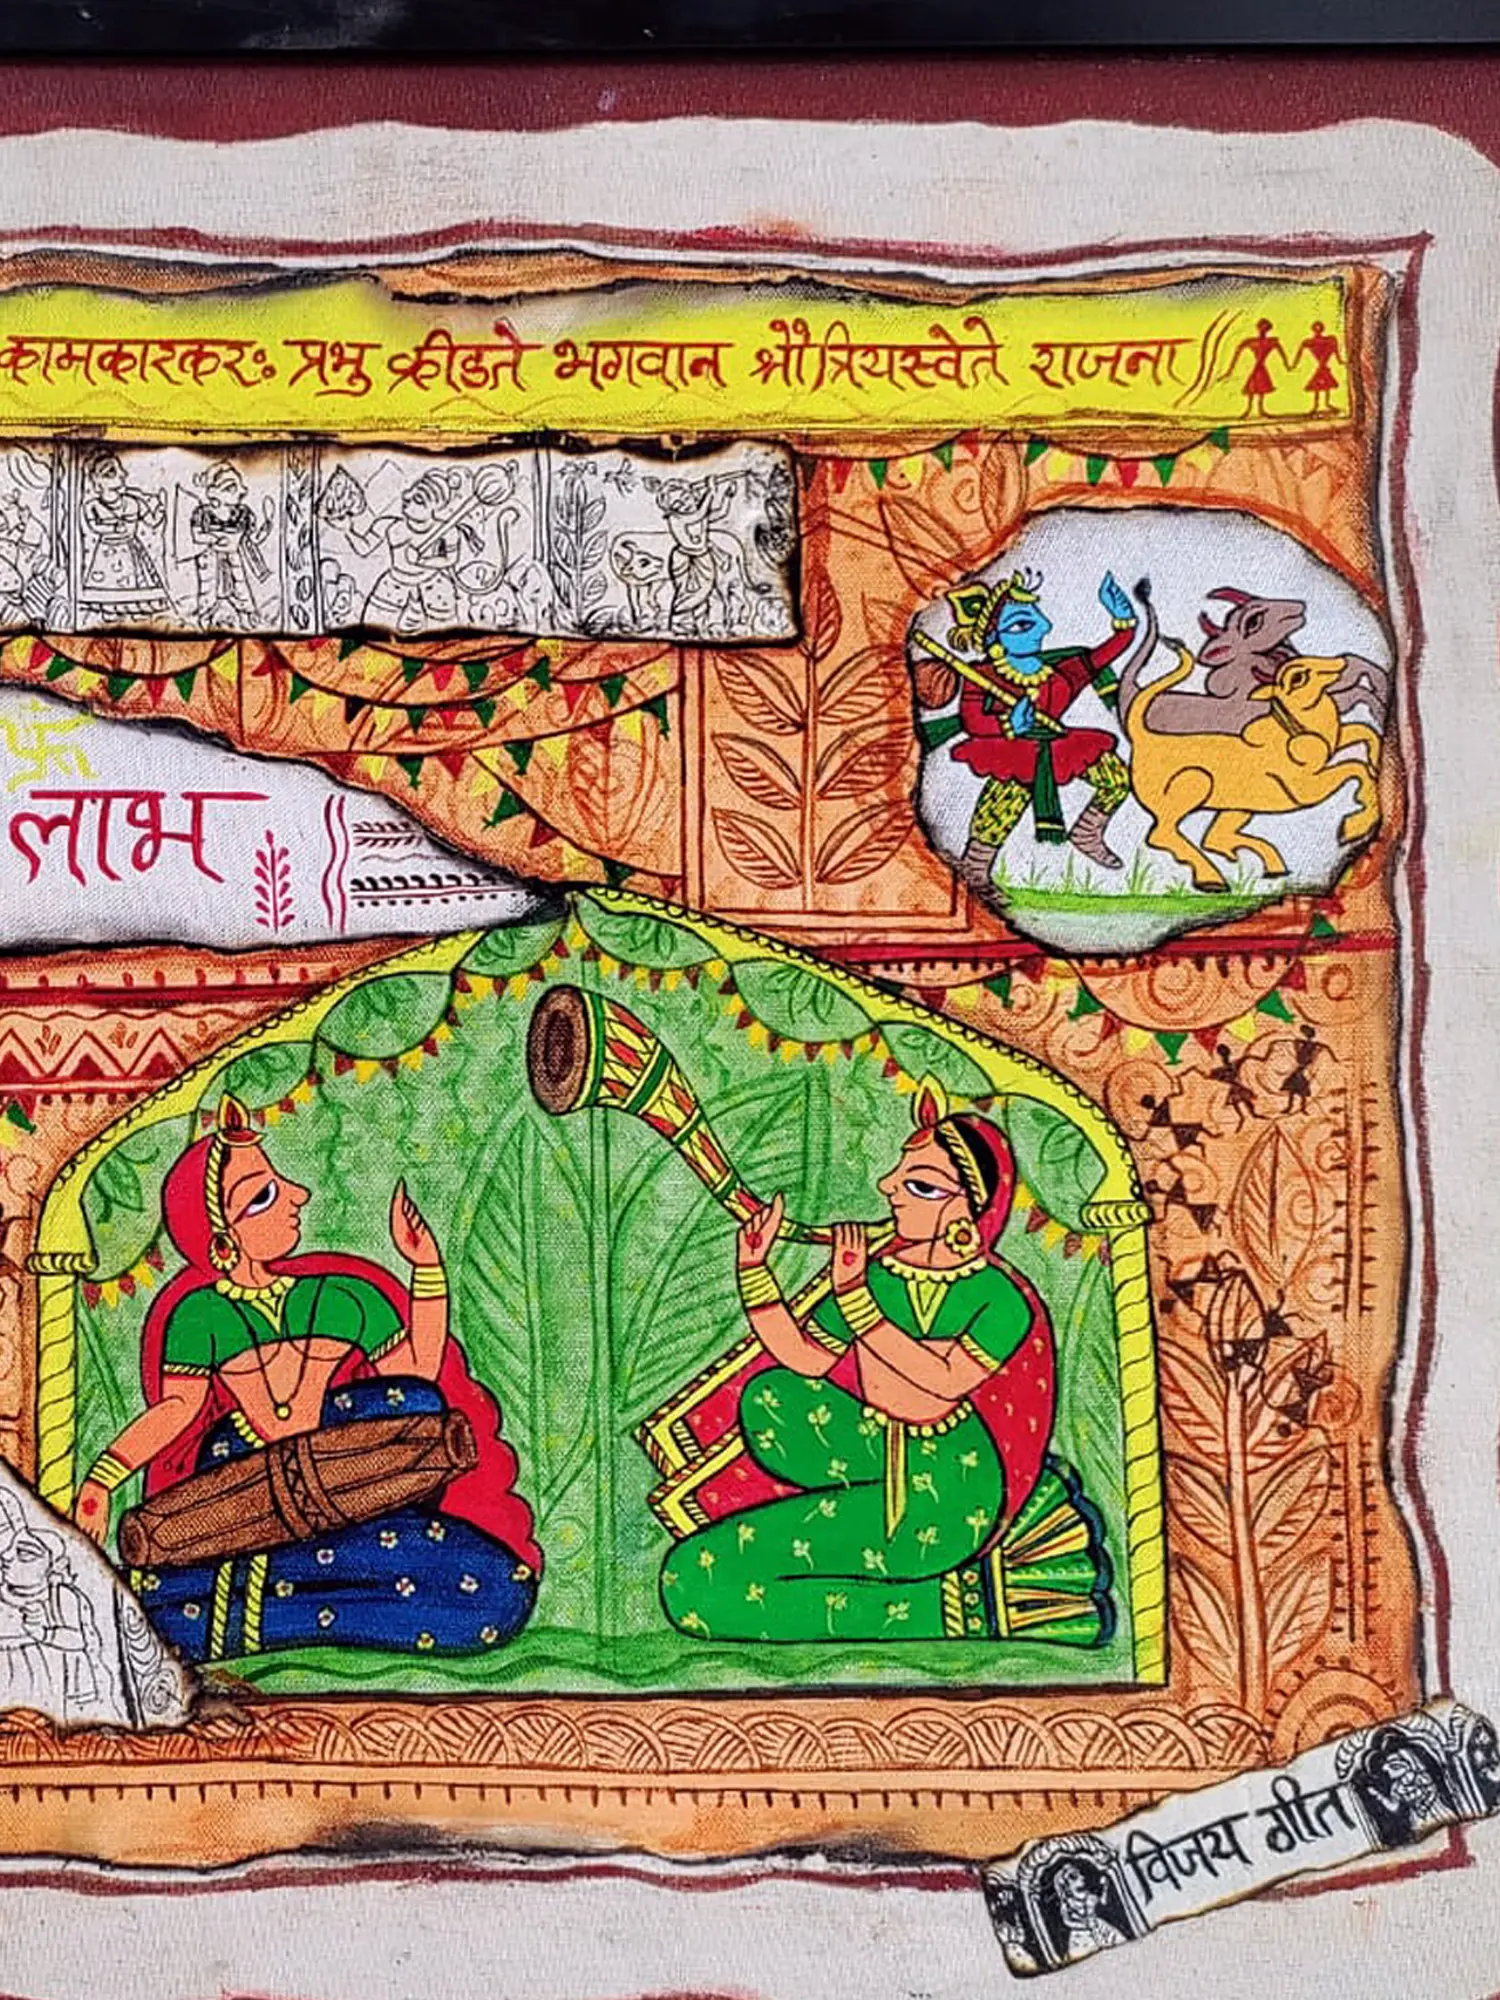 कामकारकरः प्रभु क्रीडते भगवान श्रौत्रियस्वेते राजना
लाभ
विजय गीत